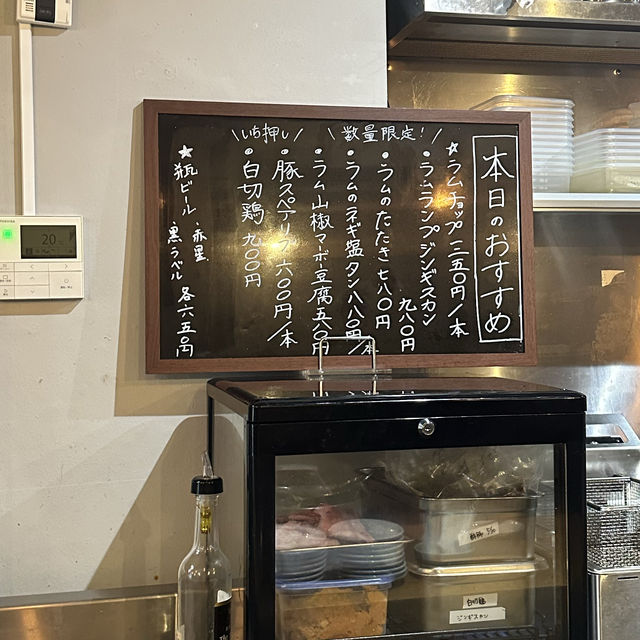 本日のおすすめ
＼数量限定！／
★ラムチョップ 二五〇円/本
・ラムランプジンギスカン
九八〇円
・ラムのたたき 七八〇円
・ラムのネギ塩タン 八八〇円/本
・ラム山椒マーボ豆腐 五八〇円
＼いち押し／
・豚スペアリブ 六〇〇円/本
・白切鶏 九〇〇円
★瓶ビール 赤星
黒ラベル 各六五〇円
TOSHIBA
20
白切鶏
ジンギスカン